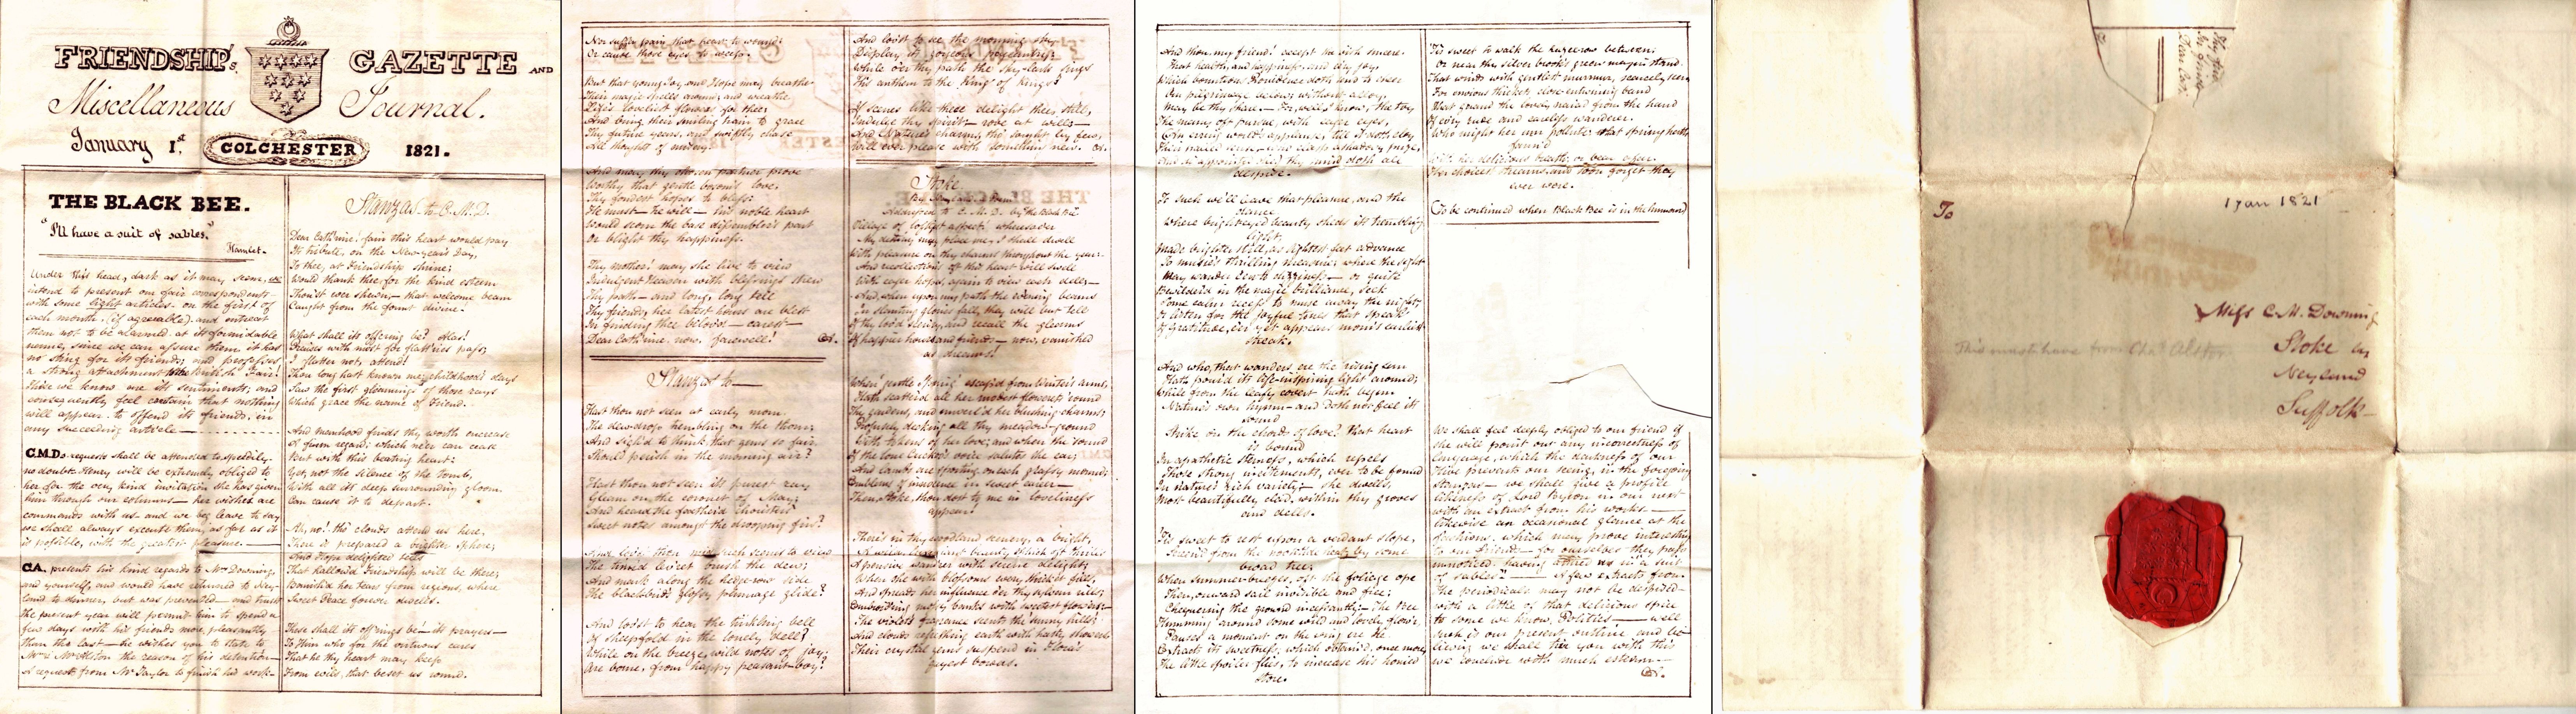 FRIENDSHIP'S GAZETTE AND
Miscellaneous Journal.
January 1st. COLCHESTER 1821.
THE BLACK BEE.
"I'll have a suit of sables."
Hamlet.
Under this head, dark as it may seem, we
intend to present our fair correspondents
with some light articles on the first of
each month, (if agreeable) and intreat
them not to be alarmed at its formidable
name, since we can assure them, it has
no sting for its friends; and professes
a strong attachment to the British Fair!
These we know are its sentiments; and
consequently feel certain that nothing
will appear to offend its friends, in
any succeeding article
C.M.D.s requests shall be attended to speedily.
no doubt Henry will be extremely obliged to
her for the very kind invitation she has given
him through our columns— her wishes are
commands with us and we beg leave to say
we shall always execute them, as far as it
is possible, with the greatest pleasure.
C.A. presents his kind regards to Mrs Downing,
and yourself, and would have returned to Ney-
land to dinner, but was prevented— and trusts
the present year will permit him to spend a
few days with his friends more pleasantly
than the last— he wishes you to state to
Mr & Mrs Alston the reason of his detention—
A request from Mr Taylor to finish his work—
Stanzas to C.M.D.
Dear Cath'rine! fain this heart would pay
Its tribute, on the New-year's Day,
To thee, at Friendship's shrine;
Would thank thee for the kind esteem
Thou'st ever shewn,— that welcome beam
Caught from the fount divine.
What shall its offering be? Alas!
Praises with most for flatt'ries pass;
I flatter not, attend!
Thou long hast known me, childhood's days
Saw the first gleamings of those rays
Which grace the name of Friend.
And manhood finds thy worth increase
A firm regard; which ne'er can cease
But with this beating heart:
Yet, not the silence of the tomb,
With all its deep surrounding gloom
Can cause it to depart.
Ah, no! tho' clouds attend us here,
There is prepared a brighter sphere,
And Hope delighted tells
That hallow'd Friendship will be there;
Banish'd her tears from regions, where
Sweet Peace forever dwells.
These shall its off'rings be!— its prayers—
To Him who for the virtuous cares
That he thy heart may keep
From evils, that beset us round.
Nor suffer pain that heart to wound
Or cause those eyes to weep.
But that young Joy and Hope may breathe
Their magic spells around, and wreathe
Life's loveliest flowers for thee;
And bring their smiling train to grace
Thy future years, and swiftly chase
All thoughts of misery.
And may thy chosen partner prove
Worthy that gentle bosom's love,
Thy fondest hopes to bless;
He must— he will— his noble heart
Would scorn the base dissembler's part
Or blight thy happiness.
Thy mother! may she live to view
Indulgent Heaven with blessings strew
Thy path— and long, long tell
Thy friends, her latest hours are blest
In finding thee belov'd— carest—
Dear Cath'rine, now, farewell!
Stanzas to —
Hast thou not seen at early morn
The dew-drops trembling on the thorn;
And sigh'd to think that gems so fair
Should perish in the morning air?
Hast thou not seen its purest ray
Gleam on the coronet of May;
And heard the feather'd choristers'
Sweet notes amongst the drooping firs?
And lov'st thou mid such scenes to view
The timid lev'ret brush the dew;
And mark along the hedge-row side
The blackbird's glossy plumage glide?
And lov'st to hear the tinkling bell
Of sheepfold in the lonely dell?
While on the breeze, wild notes of joy;
Are borne, from happy peasant-boy?
And lov'st to see the morning sky
Display its gorgeous pageantry:
While o'er thy path the sky-lark sings
His anthem to the King of Kings?
If scenes like these delight thee, still,
Indulge thy spirit— rove at will;—
And Nature's charms, tho' sought by few,
Will ever please with something new.
Stoke
By Nayland
Addressed to C.M.D. by the Black Bee.
Village of loveliest aspect! wheresoever
My destiny may place me, I shall dwell
With pleasure on thy charms throughout the year:
And recollections of this heart will swell
With eager hope, again to view each dell;—
And, when upon my path the evening beams
In slanting glories fall, they will but tell
Of thy lov'd scenery, and recall the gleams
Of happier hours and friends— now, vanished
as dreams!
When gentle Spring escap'd from Winter's arms,
Hath scatter'd all her modest flow'rets round
Thy gardens, and unveil'd her blushing charms;
Profusely decking all thy meadow-ground
With tokens of her love; and when the sound
Of the lone Cuckoo's voice salutes the ear;
And lambs are sporting on each grassy mound;
Emblems of innocence in sweet career—
Then, Stoke, thou dost to me in loveliness
appear!
There's in thy woodland scenery, a bright,
A pensive wand'rer with serene delight;
When she with blossoms every thicket fills,
And spreads her influence o'er thy sylvan rills;
Embroid'ring mossy banks with sweetest flowers:—
The violet's fragrance scents the sunny hills;
And clouds refreshing earth with hasty showers
Their crystal gems suspend in Flora's
gayest bowers.
And thou, my friend! accept the wish sincere
That health, and happiness, and ev'ry joy,
Which bounteous Providence doth send to cheer
Our pilgrimage below, without alloy,
May be thy share.— For, well I know, the toy
The many oft pursue, with eager eyes,
To such we'll leave that pleasure, and the
dance
Where bright-eyed beauty sheds its trembling
light,
Made brighter still, as lightest feet advance
To music's thrilling measure; where the sight
May wander e'en to dizziness— or quite
Bewilder'd in the magic brilliance, seek
Some calm recess to muse away the night;
Or listen for the joyful tones that speak
Of gratitude, ere yet appears morn's earliest
streak.
And who, that wanders ere the rising sun
Hath pour'd its life-inspiring light around;
While from the leafy covert hath begun
Nature's own hymn— and doth not feel its
sound
Strike on the chords of love? that heart
is bound
In apathetic sternness, which repels
Those strong incitements, ever to be found
In nature's rich variety;— she dwells,
Most beautifully clad, within thy groves
and dells.
'Tis sweet to rest upon a verdant slope,
Screen'd from the noontide heat, by some
broad tree;
When summer-breezes, oft the foliage ope
Then, onward sail invisible and free;
Chequering the ground incessantly;— The Bee
Humming around some wild and lovely flower,
Pauses a moment on the wing ere he
Extracts its sweetness, which obtain'd, once more,
The little spoiler flies, to increase his honied
store.
'Tis sweet to walk the hedgerow between;
Or near the silver brook's green margin stand
That winds with gentlest murmur, scarcely seen
For envious thickets close-entwining band
That guard the lovely naiad from the hand
Of every rude and careless wanderer.
Who might her urn pollute:
Her choicest streams, and soon forget they
ever were.
(To be continued when Black Bee is in the humour)
We shall feel deeply obliged to our friend if
she will point out any incorrectness of
language, which the darkness of our
Hive prevents our seeing, in the foregoing
stanzas— we shall give a profile
likeness of Lord Byron in our next
with an extract from his works—
likewise an occasional glance at the
fashions, which may prove interesting
to our friends— for ourselves they pass
unnoticed having attired us in a "suit
of sables"— A few extracts from
the periodicals may not be despised—
with a little of that delicious spice
to some we know, Politics— well
such is our present outline and be-
lieving we shall tire you with this
we conclude with much esteem—
1 Jan 1821
To
Miss C.M. Downing
Stoke by
Neyland
Suffolk—
This must have from Chas Alston